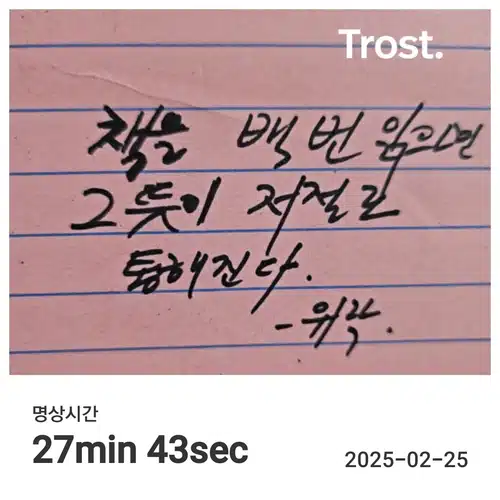 Trost.
책을 백 번 읽으면
그 뜻이 저절로
통해진다.
- 위략.
명상시간
27min 43sec
2025-02-25